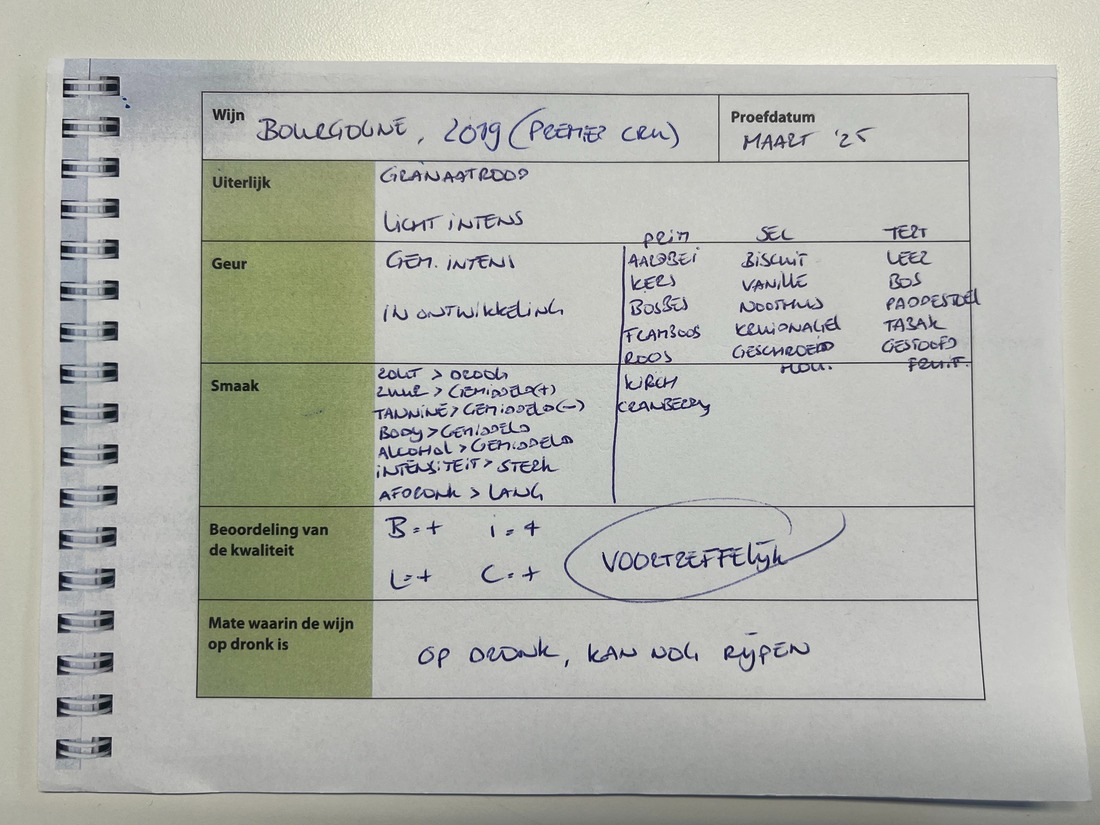 Wijn BOURGOGNE, 2019 (PREMIER CRU)
Proefdatum
MAART '25
Uiterlijk
GRANAATROOD
LICHT INTENS
Geur
GEM. INTENS
IN ONTWIKKELING
PRIM SEC TERT
AARDBEI BISCUIT LEER
KERS VANILLE BOS
BOSBES NOOTMUS PADDESTOEL
FRAMBOOS KRUIDNAGEL TABAK
ROOS GESCHROEID GESTOOFD
HOUT. FRUIT.
KIRCH
CRANBERRY
Smaak
ZOET > DROOG
ZUUR > GEMIDDELD (+)
TANNINE > GEMIDDELD (-)
BODY > GEMIDDELD
ALCOHOL > GEMIDDELD
INTENSITEIT > STERK
AFDRONK > LANG
Beoordeling van
de kwaliteit
B = + i = +
L = + C = +
VOORTREFFELIJK
Mate waarin de wijn
op dronk is
OP DRONK, KAN NOG RIJPEN